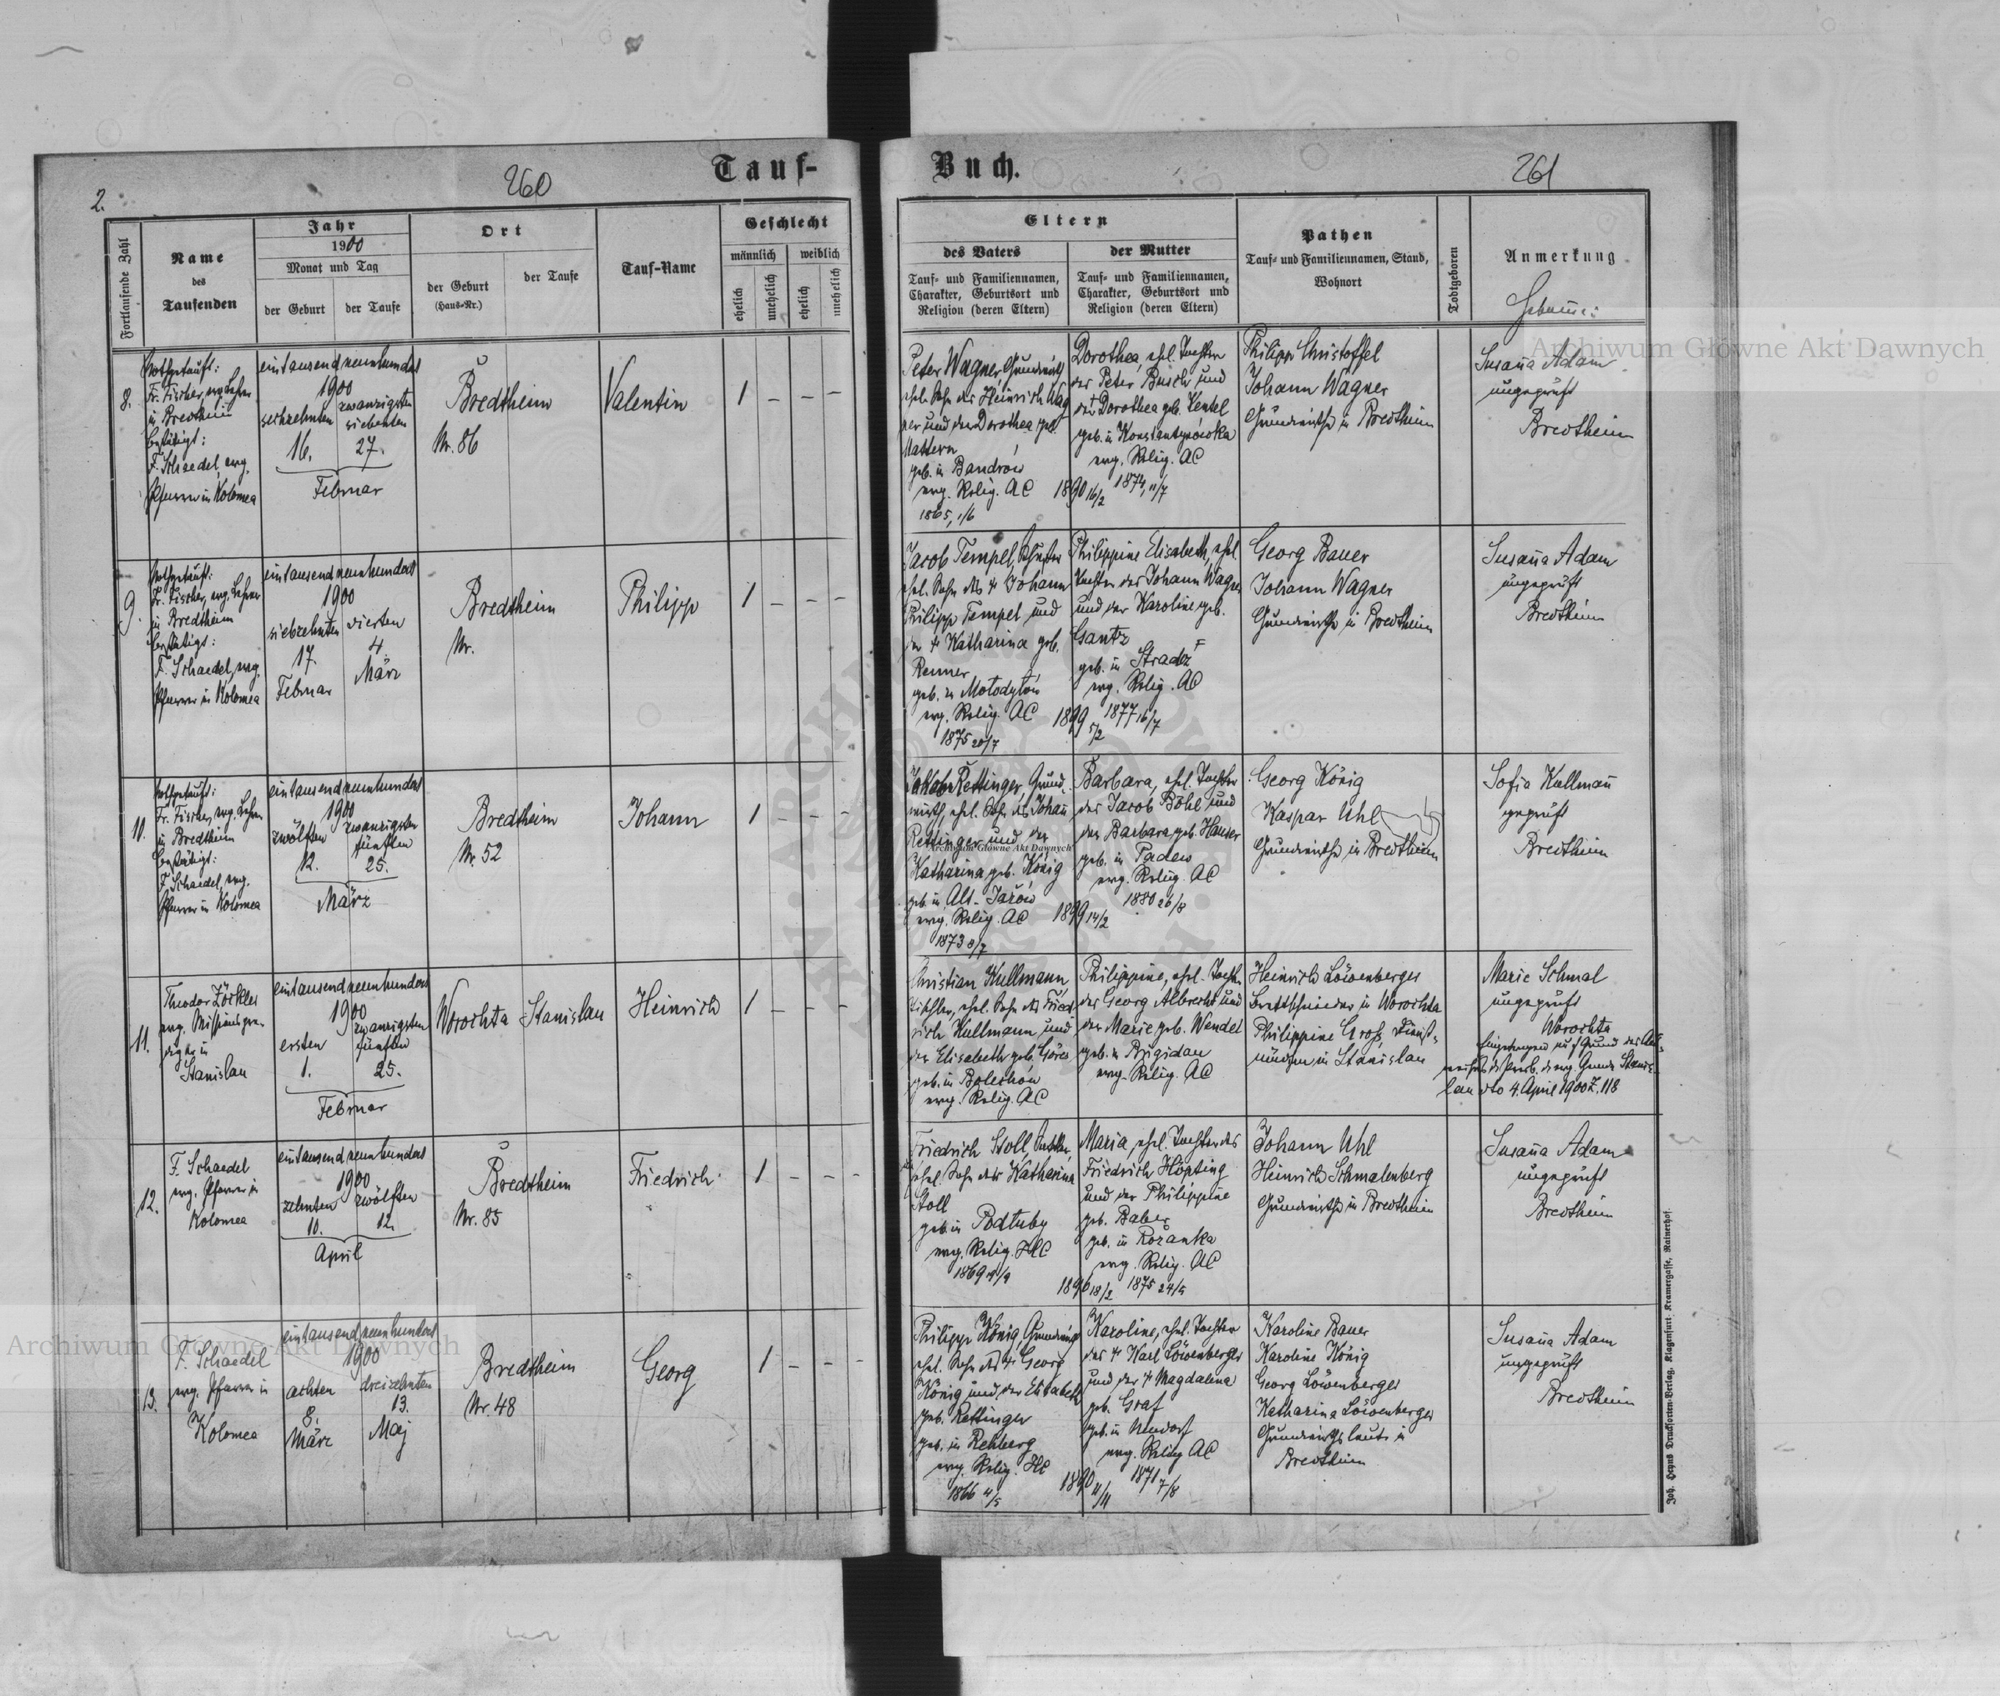 Tauf-
Buch.
260
261
2.
Fortlaufende Zahl
Name
des
Taufenden
Jahr
1900
Monat und Tag
der Geburt
der Taufe
Ort
der Geburt
(Haus-Nr.)
der Taufe
Tauf-Name
Geschlecht
männlich
weiblich
ehelich
unehelich
ehelich
unehelich
Eltern
des Vaters
Tauf- und Familiennamen,
Charakter, Geburtsort und
Religion (deren Eltern)
der Mutter
Tauf- und Familiennamen,
Charakter, Geburtsort und
Religion (deren Eltern)
Pathen
Tauf- und Familiennamen, Stand,
Wohnort
Todtgeboren
Anmerkung
Hebamme:
8.
Nothgetauft:
Fr. Fischer, evg. Lehrer
in Bredtheim
bestätigt:
F. Schaedel, evg.
Pfarrer in Kolomea
eintausendneunhundert
1900
sechzehnten
16.
zwanzigsten
siebenten
27.
Februar
Bredtheim
Nr. 86
Valentin
1 – – –
Peter Wagner, Grundwirth
ehel. Sohn des Heinrich Wag
ner und der Dorothea geb.
Mattern
geb. in Bandrów
evg. Relig. AC
1865, 1/6
1890 16/2
Dorothea, ehel. Tochter
des Peter Busch und
der Dorothea geb. Kenkel
geb. in Konstantynówka
evg. Relig. AC
1874, 11/7
Philipp Christoffel
Johann Wagner
Grundwirthe in Bredtheim
Susanna Adam
ungeprüft
Bredtheim
9.
Nothgetauft:
Fr. Fischer, evg. Lehrer
in Bredtheim
bestätigt:
F. Schaedel, evg.
Pfarrer in Kolomea
eintausendneunhundert
1900
siebzehnten
17.
Februar
vierten
4.
März
Bredtheim
Nr.
Philipp
1 – – –
Jacob Tempel, Schuster
ehel. Sohn des † Johann
Philipp Tempel und
der † Katharina geb.
Renner
geb. in Mołodyłów
evg. Relig. AC
1875 20/7
1899 5/2
Philippine Elisabeth, ehel.
Tochter des Johann Wagner
und der Karoline geb.
Gantz
geb. in Stradcz
evg. Relig. AC
1877 16/7
Georg Bauer
Johann Wagner
Grundwirthe in Bredtheim
Susanna Adam
ungeprüft
Bredtheim
11.
Nothgetauft:
Fr. Fischer, evg. Lehrer
in Bredtheim
bestätigt:
F. Schaedel, evg.
Pfarrer in Kolomea
eintausendneunhundert
1900
zwölften
12.
zwanzigsten
fünften
25.
März
Bredtheim
Nr. 52
Johann
1 – – –
Jakob Rettinger, Grund-
wirth, ehel. Sohn des Johann
Rettinger und der
Katharina geb. König
geb. in Alt-Jażów
evg. Relig. AC
1873 8/7
1899 14/2
Barbara, ehel. Tochter
des Jacob Böhl und
der Barbara geb. Hauser
geb. in Padew
evg. Relig. AC
1880 26/8
Georg König
Kaspar Uhl
Grundwirthe in Bredtheim
Sofia Kullmann
geprüft
Bredtheim
11.
Theodor Zöckler
evg. Missionspre-
diger in
Stanislau
eintausendneunhundert
1900
ersten
1.
zwanzigsten
fünften
25.
Februar
Worochta
Stanislau
Heinrich
1 – – –
Christian Kullmann,
Tischler, ehel. Sohn des Fried
rich Kullmann und
der Elisabeth geb. Göres
geb. in Bolechów
evg. Relig. AC
Philippine, ehel. Tochter
des Georg Albrecht und
der Marie geb. Wendel
geb. in Brigidau
evg. Relig. AC
Heinrich Löwenberger
Brettschneider in Worochta
Philippine Groß, Dienst-
mädchen in Stanislau
Marie Schmal
ungeprüft
Worochta
Eingetragen auf Grund des Aus-
weises der evg. Gemde Stanis-
lau dto 4. April 1900 Z. 118
12.
F. Schaedel
evg. Pfarrer in
Kolomea
eintausendneunhundert
1900
zehnten
10.
zwölften
12.
April
Bredtheim
Nr. 85
Friedrich
1 – – –
Friedrich Stoll,
ehel. Sohn der Katharina
Stoll
geb. in Podłuby
evg. Relig. HC
1869 19/9
1896 18/2
Maria, ehel. Tochter des
Friedrich Höpting
und der Philippine
geb. Baber
geb. in Rożanka
evg. Relig. AC
1875 24/5
Johann Uhl
Heinrich Schmalenberg
Grundwirthe in Bredtheim
Susanna Adam
ungeprüft
Bredtheim
13.
F. Schaedel
evg. Pfarrer in
Kolomea
eintausendneunhundert
1900
achten
8.
März
dreizehnten
13.
Maj
Bredtheim
Nr. 48
Georg
1 – – –
Philipp König, Grundwirth
ehel. Sohn des † Georg
König und der Elisabeth
geb. Rettinger
geb. in Rehberg
evg. Relig. HC
1866 4/5
1890 11/11
Karoline, ehel. Tochter
des † Karl Löwenberger
und der † Magdalena
geb. Graf
geb. in Neudorf
evg. Relig. AC
1871 7/8
Karoline Bauer
Karoline König
Georg Löwenberger
Katharina Löwenberger
Grundwirthsleute in
Bredtheim
Susanna Adam
ungeprüft
Bredtheim
Joh. Heyns Drucksorten-Verlag, Klagenfurt, Kramergasse, Rainerhof.
Archiwum Główne Akt Dawnych
Archiwum Główne Akt Dawnych
Archiwum Główne Akt Dawnych